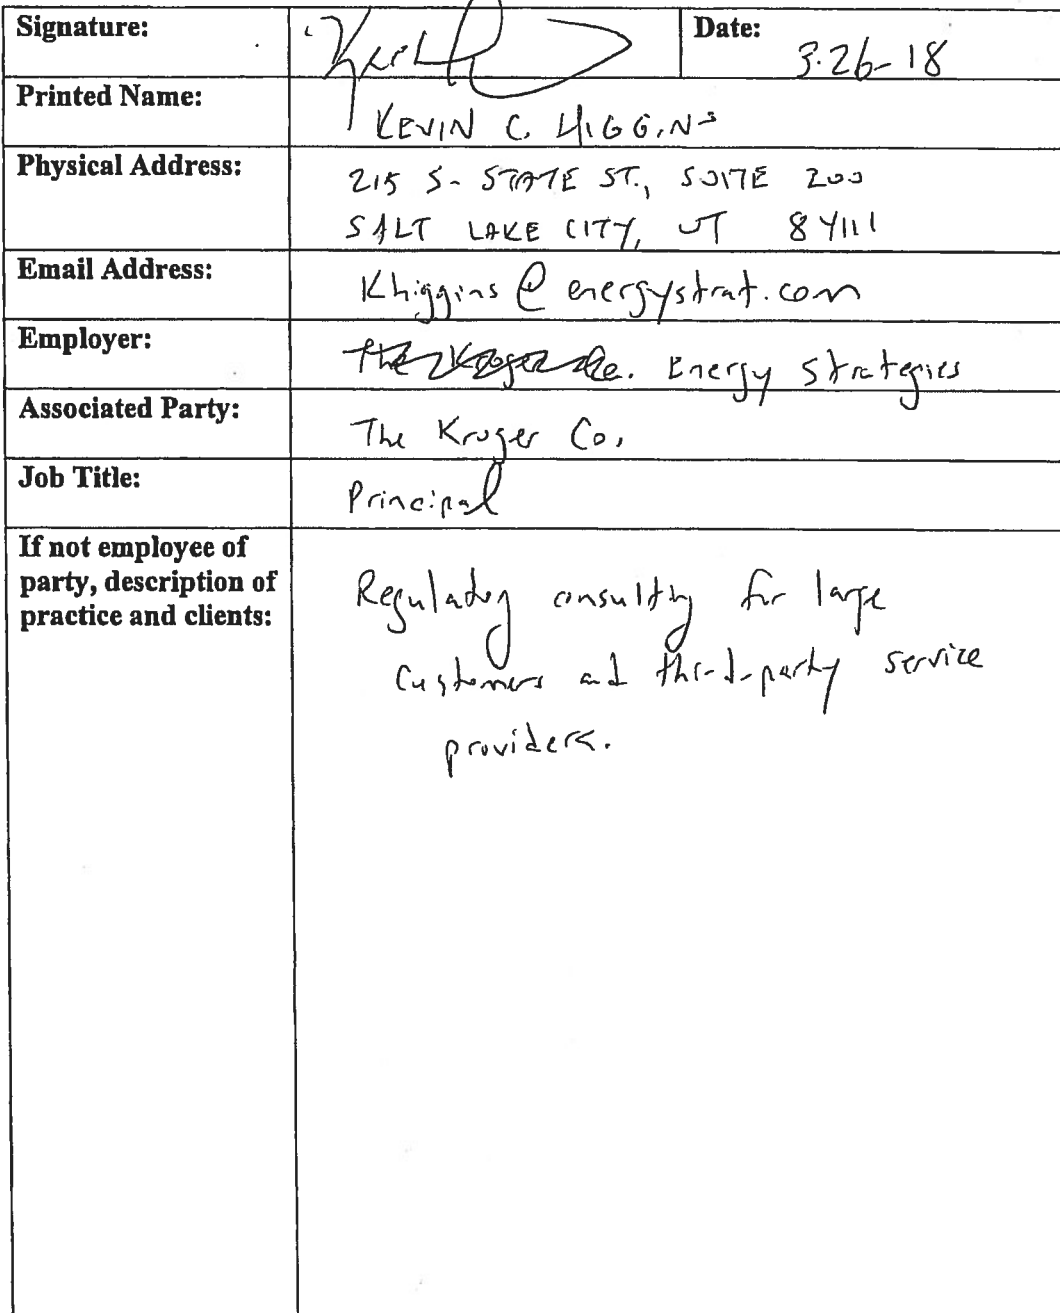 Signature:
Date:
3-26-18
Printed Name:
KEVIN C. HIGGINS
Physical Address:
215 S. STATE ST., SUITE 200
SALT LAKE CITY, UT 84111
Email Address:
Khiggins@energystrat.com
Employer:
The Kroger Co. Energy Strategies
Associated Party:
The Kroger Co.
Job Title:
Principal
If not employee of
party, description of
practice and clients:
Regulatory consulting for large
customers and third-party service
providers.